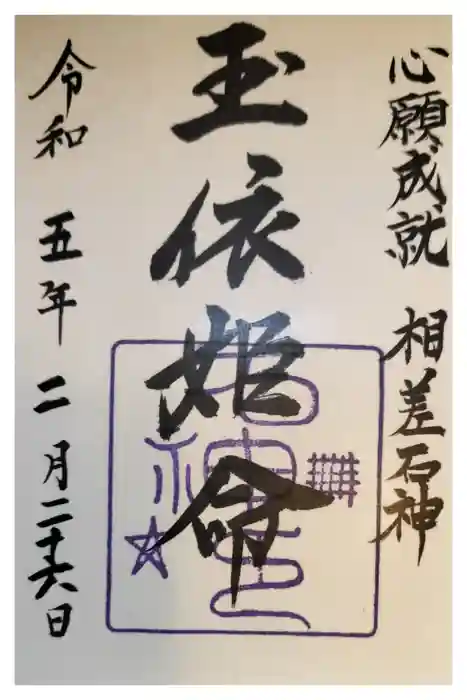 心願成就 相差石神
玉依姫命
令和 五年 二月二十六日